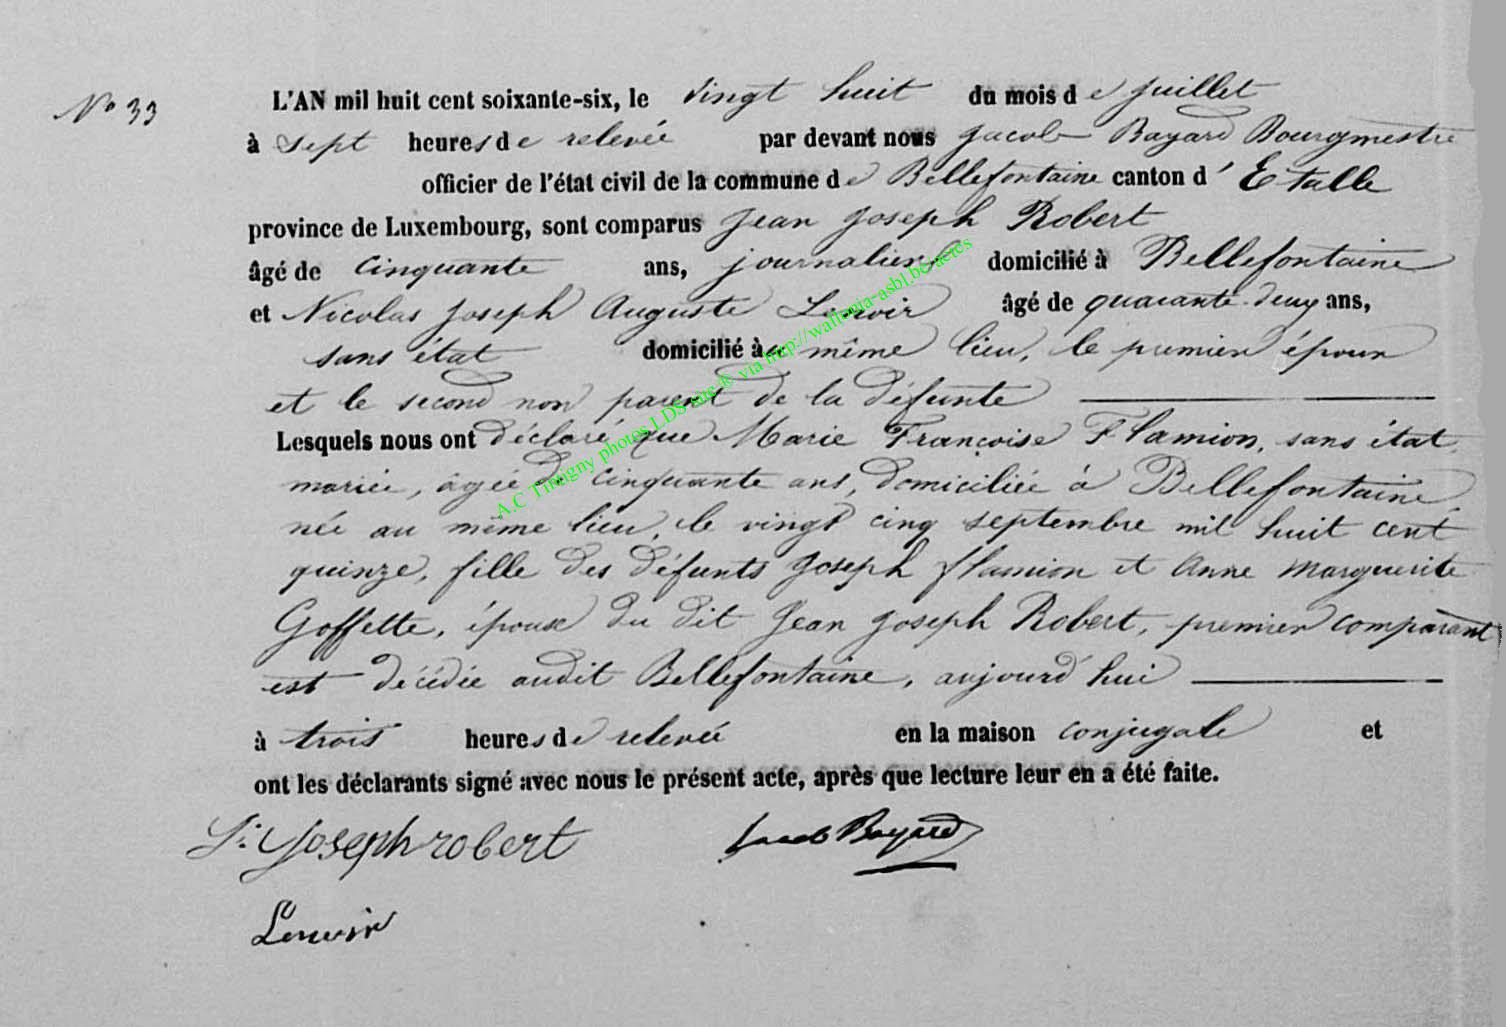 No 33
L'AN mil huit cent soixante-six, le vingt huit du mois de juillet
à sept heures de relevée par devant nous Jacob Bayard Bourgmestre
officier de l'état civil de la commune de Bellefontaine canton d'Etalle
province de Luxembourg, sont comparus Jean Joseph Robert
âgé de cinquante ans, journalier domicilié à Bellefontaine
et Nicolas Joseph Auguste Lenoir âgé de quarante-deux ans,
sans état domicilié au même lieu, le premier époux
et le second non parent de la défunte
Lesquels nous ont déclaré que Marie Françoise Flamion, sans état,
mariée, âgée de cinquante ans, domiciliée à Bellefontaine,
née au même lieu, le vingt cinq septembre mil huit cent
quinze, fille des défunts Joseph flamion et Anne Marguerite
Goffette, épouse du dit Jean Joseph Robert, premier comparant
est décédée audit Bellefontaine, aujourd'hui
à trois heures de relevée en la maison conjugale et
ont les déclarants signé avec nous le présent acte, après que lecture leur en a été faite.
Joseph robert Jacob Bayard
Lenoir
A.C Tintigny photos LDS site ® via http://wallonia-asbl.be/actes